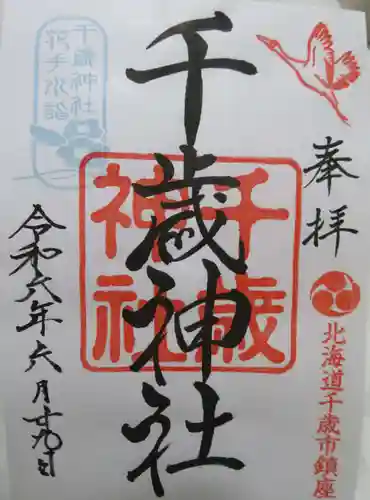 奉拝
北海道千歳市鎮座
千歳神社
千歳神社
千歳神社
花手水詣
令和六年六月廿九日